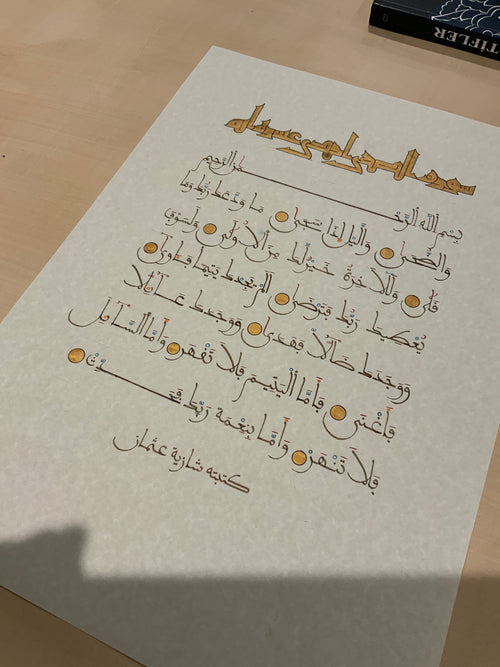 سورة الضحى احدى عشر ءاية
بِسْمِ اللَّهِ الرَّحْمَٰنِ الرَّحِيمِ
وَالضُّحَىٰ وَالَّيْلِ إِذَا سَجَىٰ مَا وَدَّعَكَ رَبُّكَ وَمَا
قَلَىٰ وَلَلْآخِرَةُ خَيْرٌ لَّكَ مِنَ الْأُولَىٰ وَلَسَوْفَ
يُعْطِيكَ رَبُّكَ فَتَرْضَىٰ أَلَمْ يَجِدْكَ يَتِيمًا فَآوَىٰ
وَوَجَدَكَ ضَالًّا فَهَدَىٰ وَوَجَدَكَ عَائِلًا
فَأَغْنَىٰ فَأَمَّا الْيَتِيمَ فَلَا تَقْهَرْ وَأَمَّا السَّائِلَ
فَلَا تَنْهَرْ وَأَمَّا بِنِعْمَةِ رَبِّكَ فَحَدِّثْ
كتبته شازية عثمان